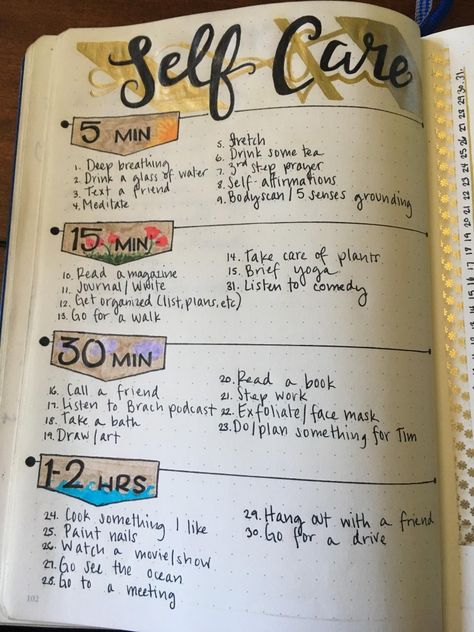 Self Care
5 MIN
1. Deep breathing
2. Drink a glass of water
3. Text a friend
4. Meditate
5. Stretch
6. Drink some tea
7. 3rd step prayer
8. Self-affirmations
9. Bodyscan/5 senses grounding
15 MIN
10. Read a magazine
11. Journal/write
12. Get organized (list, plans, etc)
13. Go for a walk
14. Take care of plants
15. Brief yoga
31. Listen to comedy
30 MIN
16. Call a friend
17. Listen to Brach podcast
18. Take a bath
19. Draw/art
20. Read a book
21. Step work
22. Exfoliate/face mask
23. Do/plan something for Tim
1-2 HRS
24. Cook something I like
25. Paint nails
26. Watch a movie/show
27. Go see the ocean
28. Go to a meeting
29. Hang out with a friend
30. Go for a drive
102